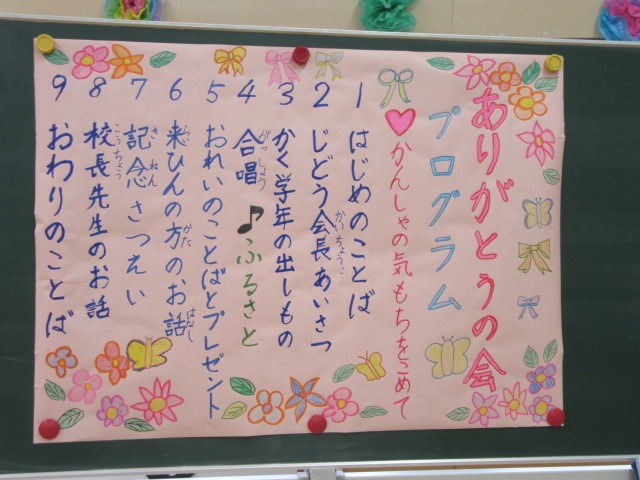 ありがとうの会
プログラム
かんしゃの気もちをこめて
1 はじめのことば
2 じどう会長あいさつ
かいちょう
3 かく学年の出しもの
4 合唱 ♪ふるさと
がっしょう
5 おれいのことばとプレゼント
6 来ひんの方のお話
らい がた はなし
7 記念さつえい
きねん
8 校長先生のお話
こうちょう
9 おわりのことば